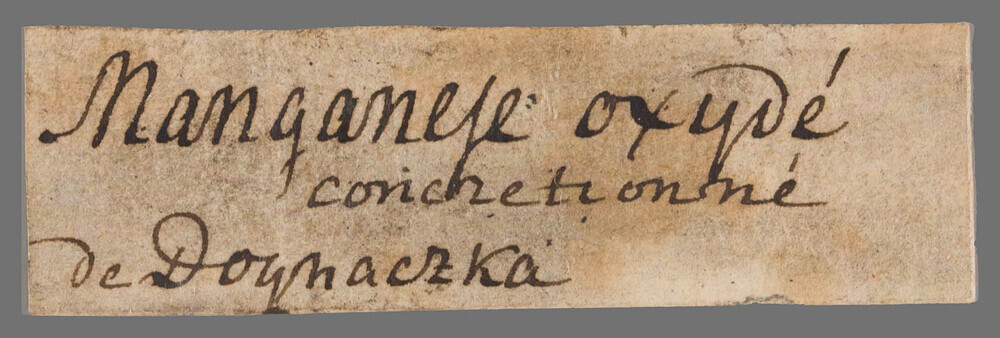 Manganese oxydé
concretionné
de Dognaczka